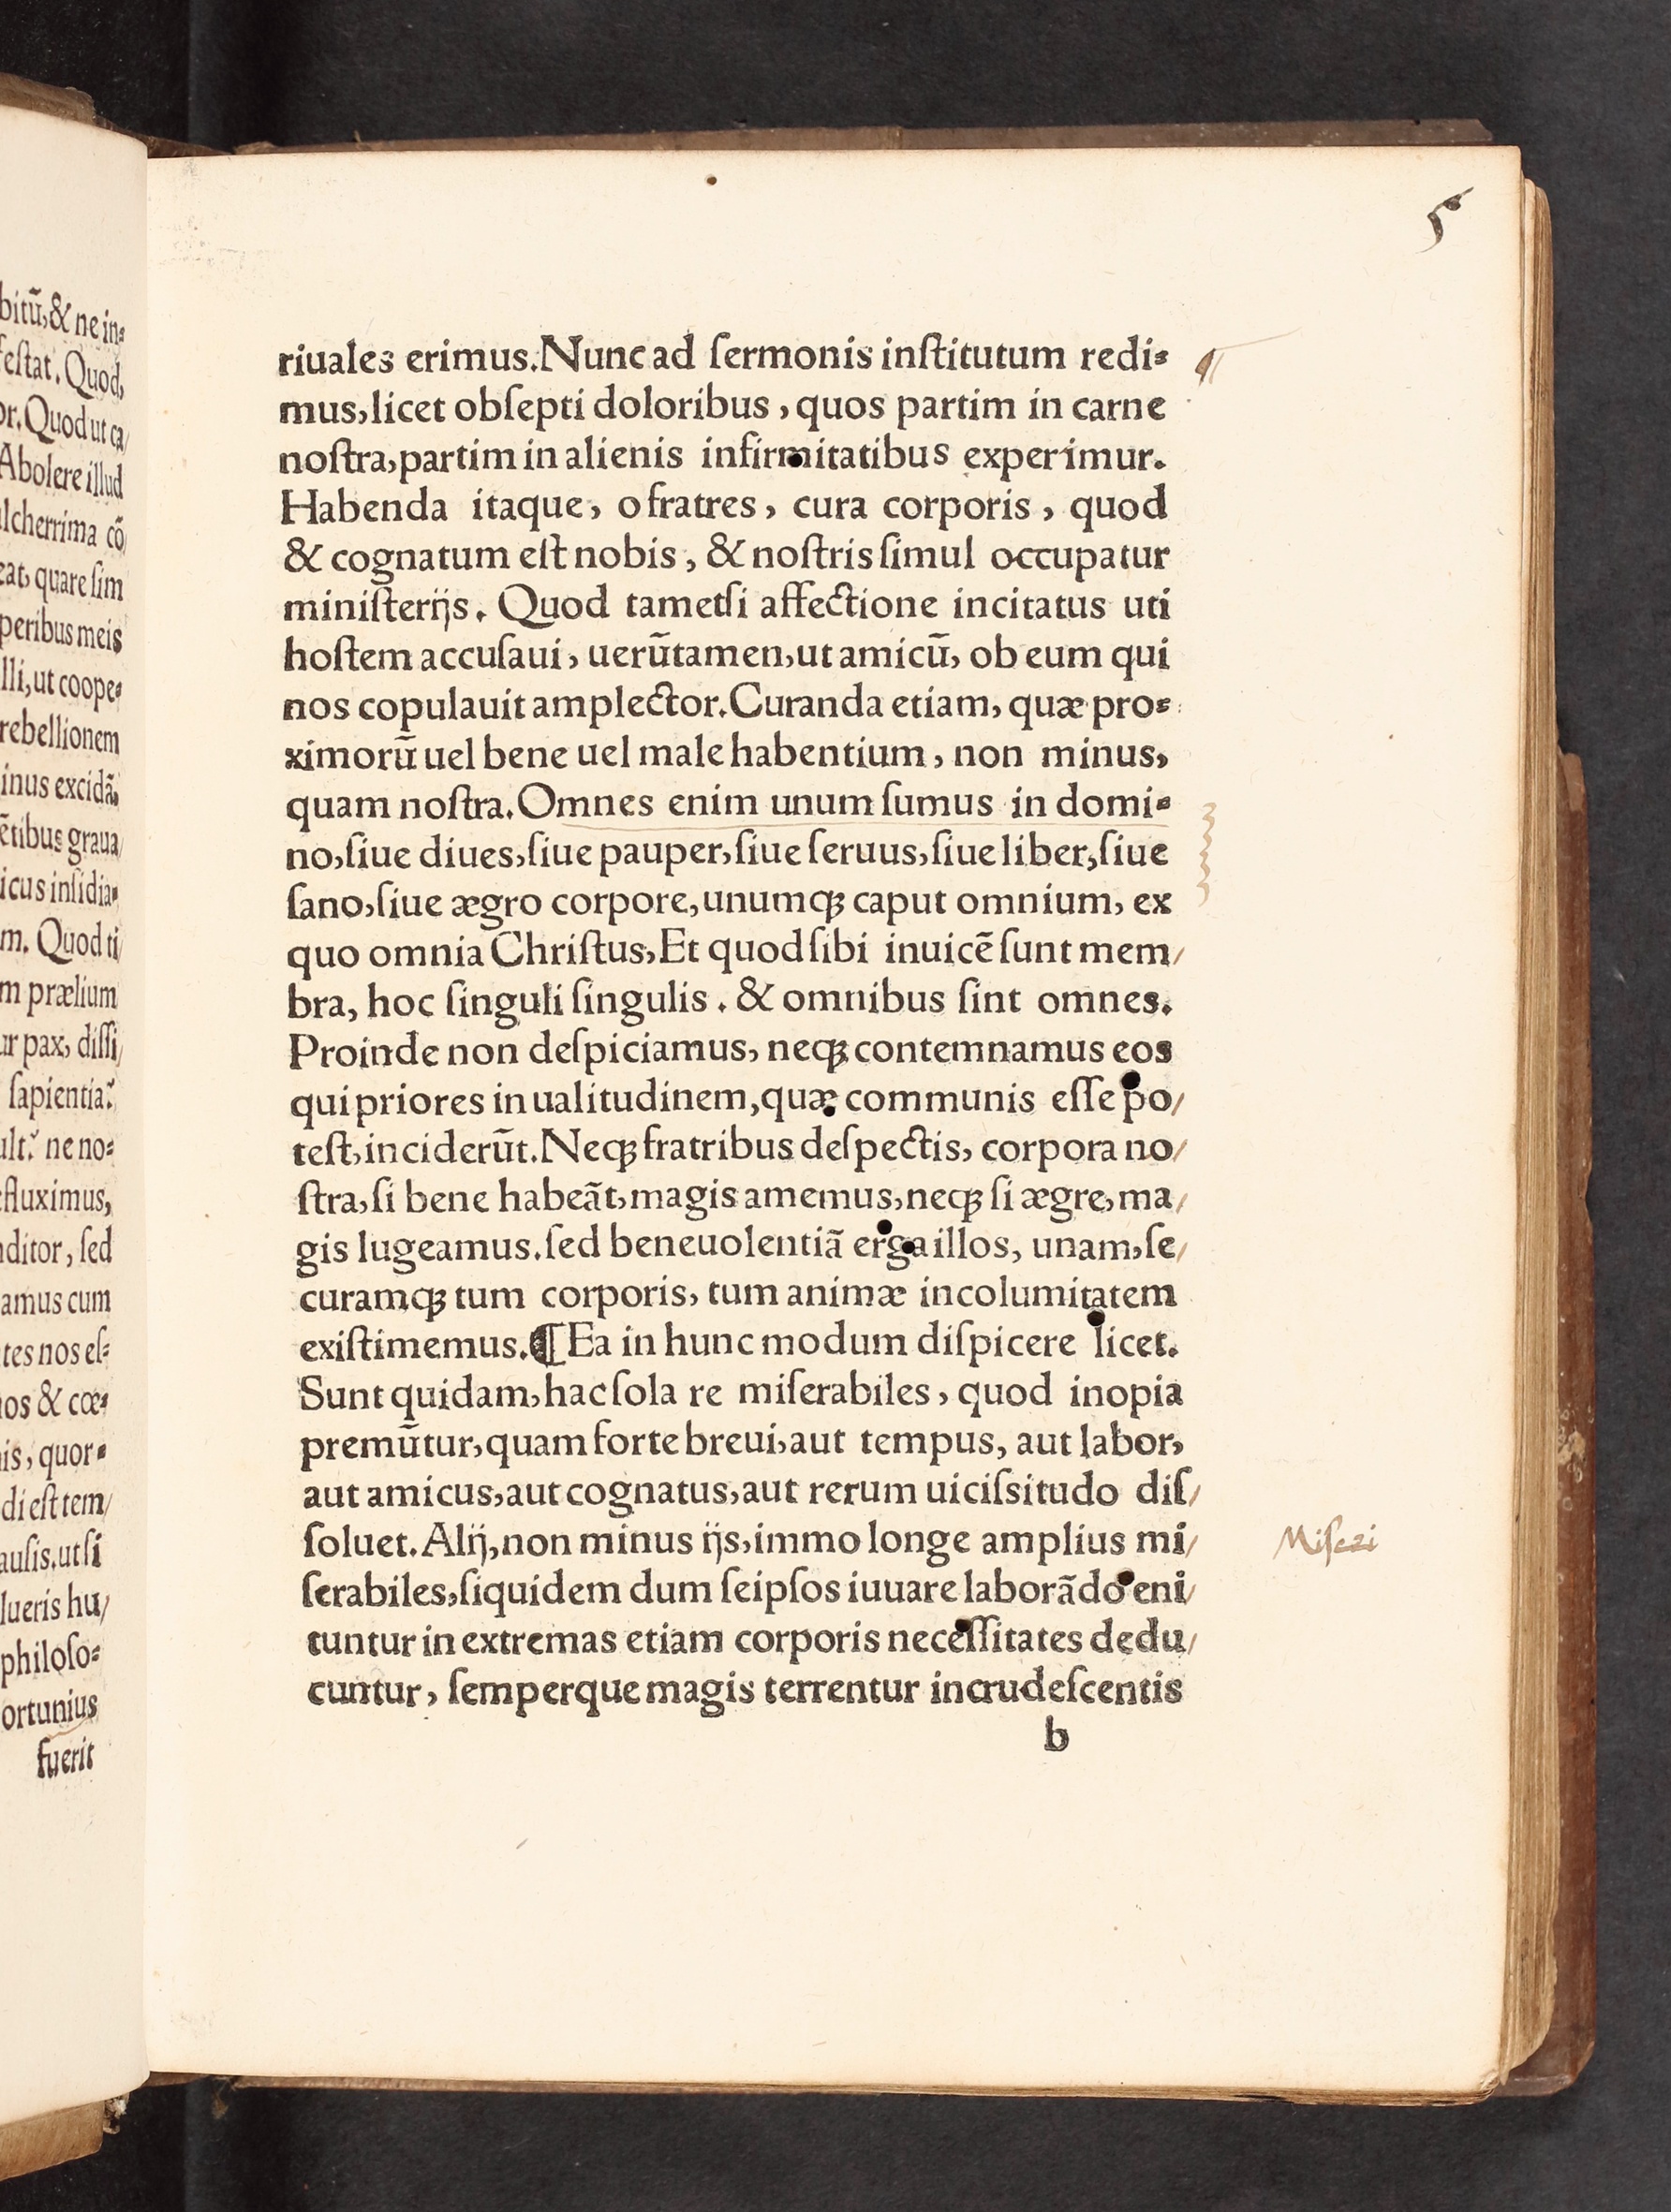 bitū,&ne in=
festat. Quod,
or. Quod ut ca/
Abolere illud
lcherrima cō
eat, quare sim
peribus meis
lli, ut coope=
rebellionem
inus excidā.
ētibus graua/
icus insidia=
m. Quod ti/
m prælium
ur pax, dissi/
sapientia?
ult? ne no=
fluximus,
ditor, sed
amus cum
tes nos es=
nos & cœ=
is, quor=
di est tem/
ausis. ut si
lueris hu/
philoso=
ortunius
fuerit
5
riuales erimus. Nunc ad ſermonis inſtitutum redi= ¶
mus, licet obſepti doloribus, quos partim in carne
noſtra, partim in alienis infirmitatibus experimur.
Habenda itaque, o fratres, cura corporis, quod
& cognatum eſt nobis, & noſtris ſimul occupatur
miniſterijs. Quod tametſi affectione incitatus uti
hoſtem accuſaui, uerūtamen, ut amicū, ob eum qui
nos copulauit amplector. Curanda etiam, quæ pro=
ximorū uel bene uel male habentium, non minus,
quam noſtra. Omnes enim unum ſumus in domi=
no, ſiue diues, ſiue pauper, ſiue ſeruus, ſiue liber, ſiue
ſano, ſiue ægro corpore, unumqꝫ caput omnium, ex
quo omnia Chriſtus, Et quod ſibi inuicē ſunt mem/
bra, hoc ſinguli ſingulis. & omnibus ſint omnes.
Proinde non deſpiciamus, neqꝫ contemnamus eos
qui priores in ualitudinem, quæ communis eſſe po/
teſt, inciderūt. Neqꝫ fratribus deſpectis, corpora no/
ſtra, ſi bene habeāt, magis amemus, neqꝫ ſi ægre, ma/
gis lugeamus. ſed beneuolentiā erga illos, unam, ſe/
curamqꝫ tum corporis, tum animæ incolumitatem
exiſtimemus. ¶ Ea in hunc modum diſpicere licet.
Sunt quidam, hac ſola re miſerabiles, quod inopia
premūtur, quam forte breui, aut tempus, aut labor,
aut amicus, aut cognatus, aut rerum uiciſsitudo diſ/
ſoluet. Alij, non minus ijs, immo longe amplius mi/
Miſeri
ſerabiles, ſiquidem dum ſeipſos iuuare laborādo eni/
tuntur in extremas etiam corporis neceſſitates dedu/
cuntur, ſemperque magis terrentur incrudeſcentis
b